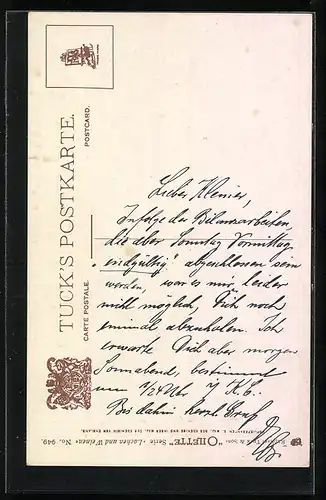 TUCK'S POSTKARTE.
CARTE POSTALE.
POSTCARD.
Lieber Kleiner,
Infolge der Bilanzarbeiten,
die aber Sonntag Vormittag
"endgültig" abgeschlossen sein
werden, war es mir leider
nicht möglich, Dich noch
einmal abzuholen. Ich
erwarte Dich aber morgen
Sonnabend, bestimmt
um 1/2 4 Uhr i/ K.C.
Bis dahin herzl. Gruß
Raphael Tuck & Sons "OILETTE" Serie »Lachen und Weinen« No. 949.